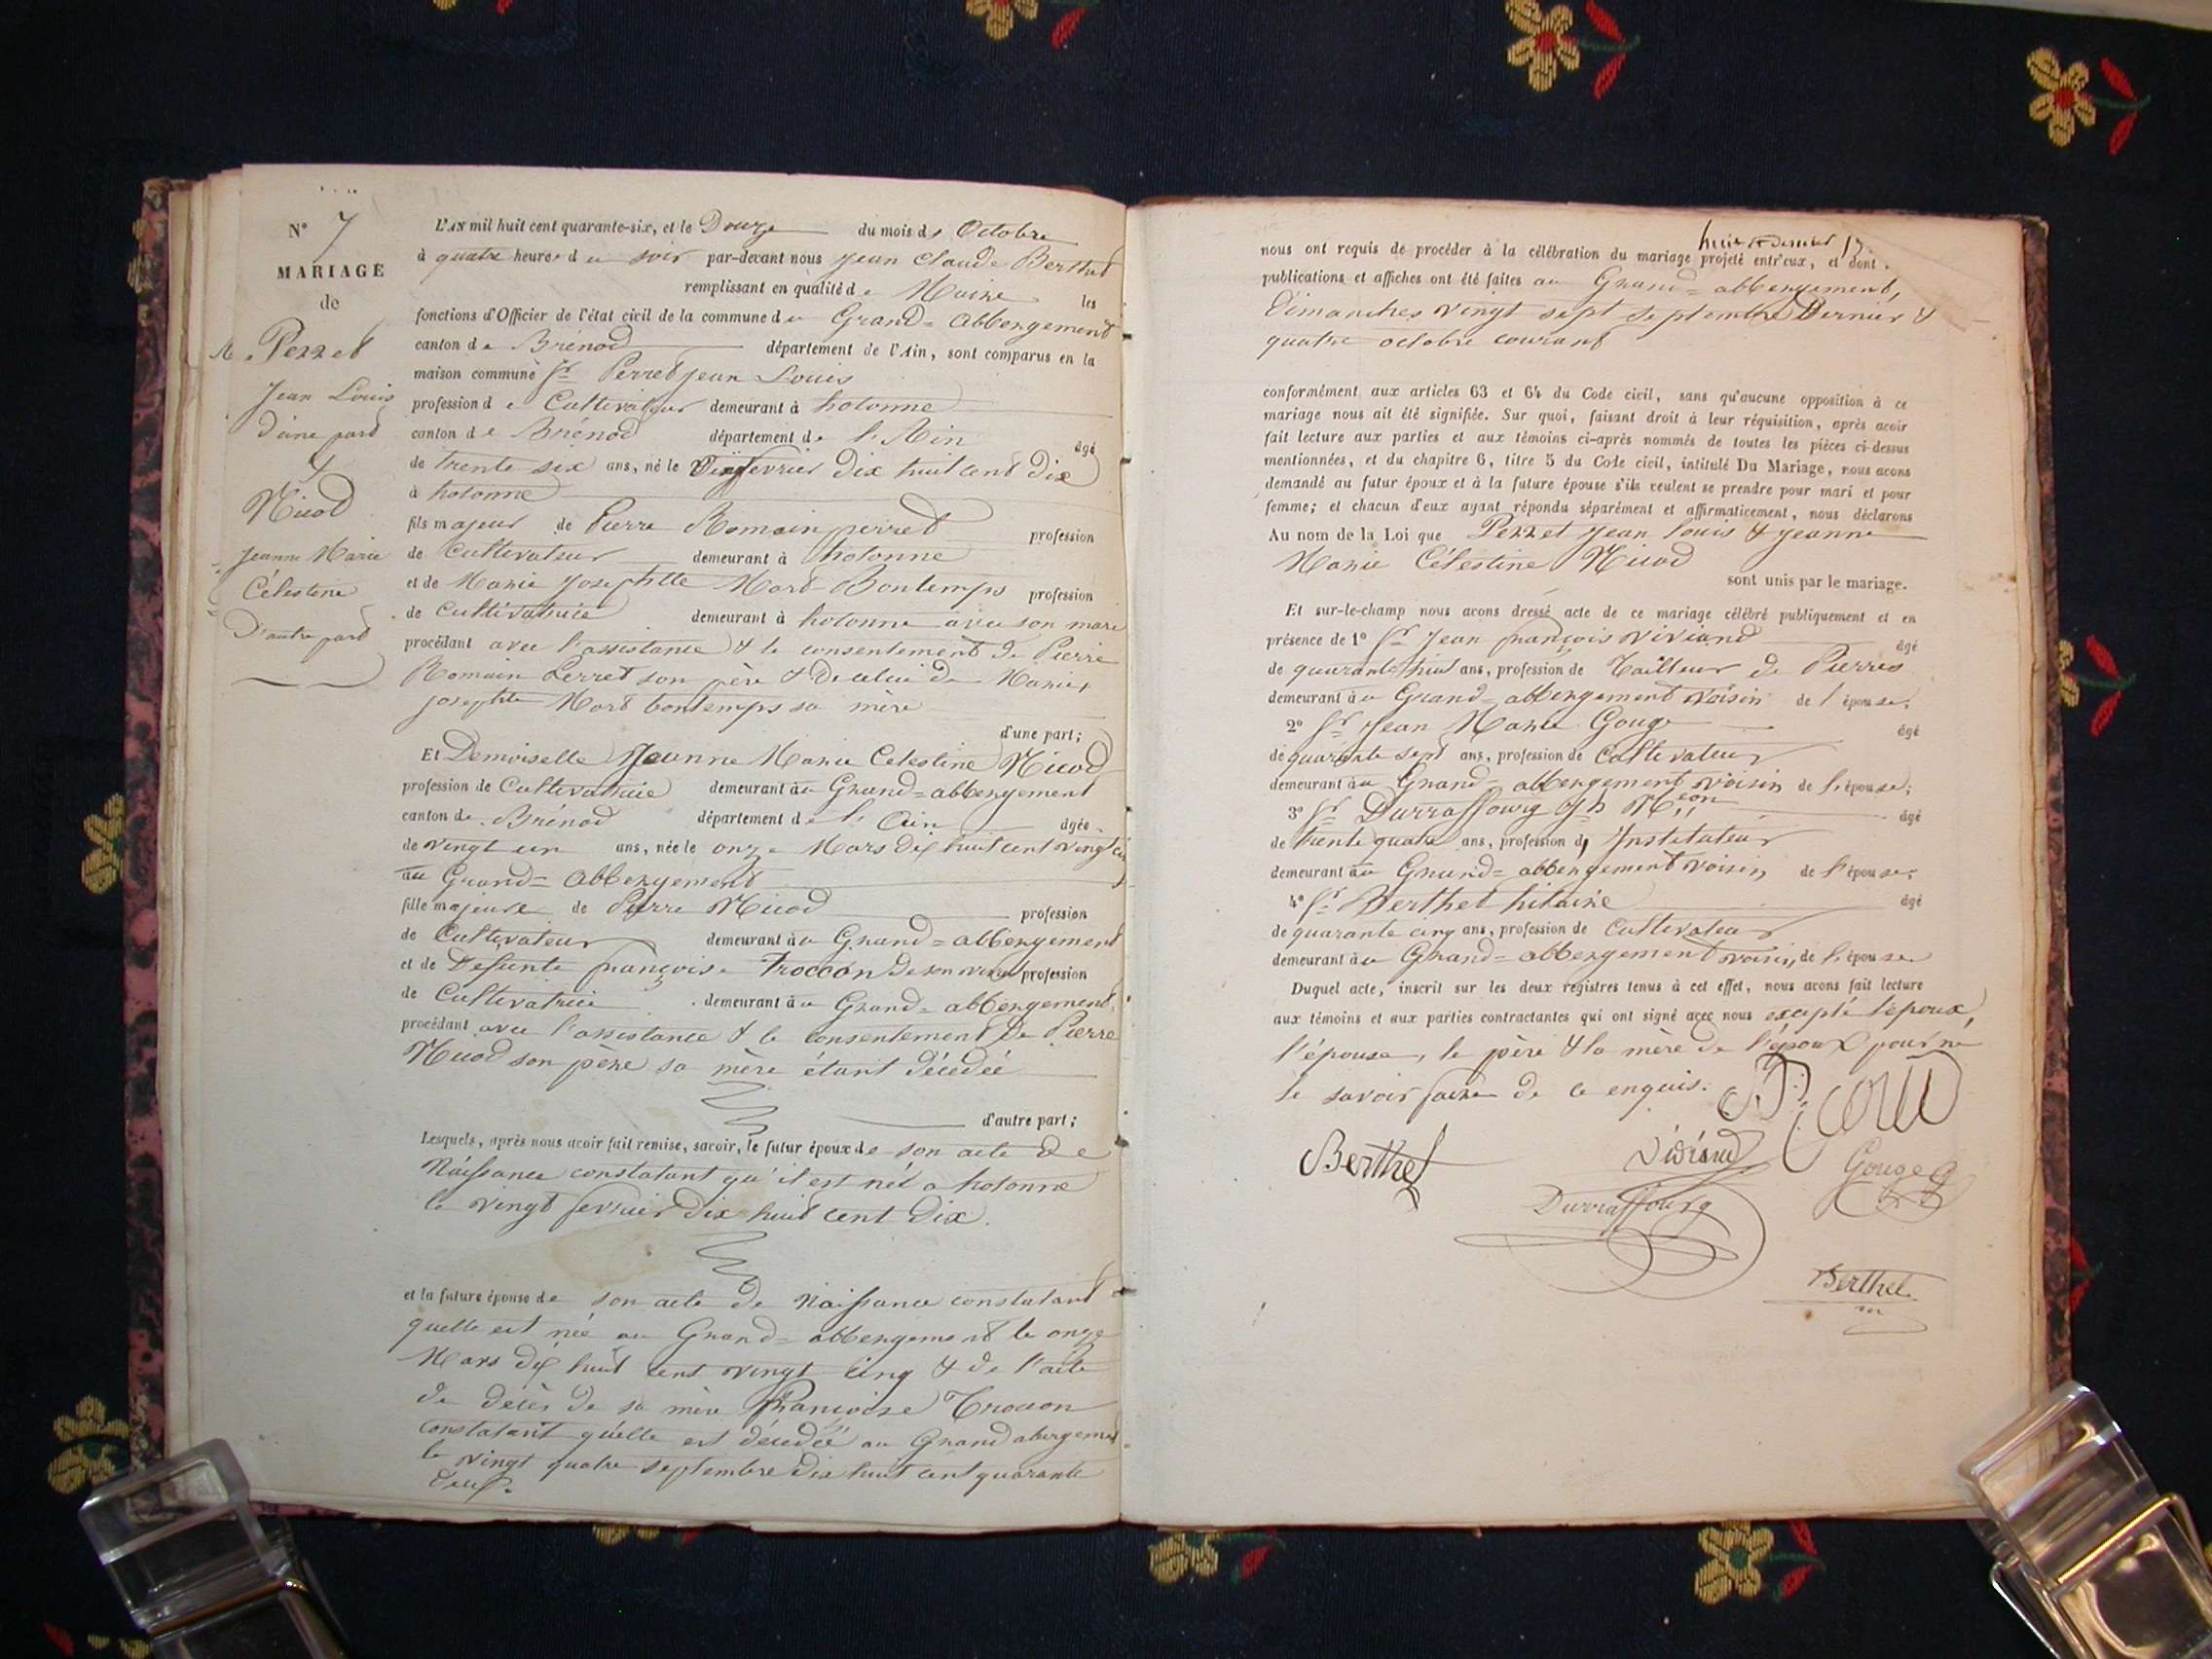 N° 7
MARIAGE
de
Perret
Jean Louis
d'une part
&
Nicod
Jeanne Marie
Célestine
D'autre part
L'AN mil huit cent quarante-six, et le Douze du mois de Octobre
à quatre heures du soir par-devant nous Jean Claude Berthet
remplissant en qualité de Maire les
fonctions d'Officier de l'état civil de la commune du Grand=Abbergement
canton de Brénod département de l'Ain, sont comparus en la
maison commune Sr Perret jean Louis
profession de Cultivateur demeurant à hotonne
canton de Brénod département de l'Ain âgé
de trente six ans, né le Vingt fevrier dix huit cent dix
à hotonne
fils majeur de Pierre Romain perret profession
de Cultivateur demeurant à hotonne
et de Marie Josephtte Mort-Bontemps profession
de Cultivatrice demeurant à hotonne avec son mari
procédant avec l'assistance & le consentement de Pierre
Romain Perret son père & de celui de Marie
josephte Mort bontemps sa mère
d'une part;
Et Demoiselle Jeanne Marie Celestine Nicod
profession de Cultivatrice demeurant au Grand=abbergement
canton de Brénod département de l'Ain âgée
de vingt un ans, née le onze Mars dix huit cent vingt cinq
au Grand=Abbergement
fille majeure de Pierre Nicod profession
de Cultivateur demeurant au Grand=abbergement
et de Defunte françoise Troccon de son vivant profession
de Cultivatrice demeurant au Grand=abbergement
procédant avec l'assistance & le consentement de Pierre
Nicod son père sa mère étant décédée
d'autre part;
Lesquels, après nous avoir fait remise, savoir, le futur époux de son acte de
Naissance constatant qu'il est né a hotonne
le vingt fevrier dix huit cent dix.
et la future épouse de son acte de Naissance constatant
quelle est née au Grand=abbergement le onze
Mars dix huit cent vingt cinq & de l'acte
de décès de sa mère françoise Troccon
constatant qu'elle est décédée au Grand abergement
le vingt quatre septembre dix huit cent quarante
deux.
nous ont requis de procéder à la célébration du mariage projeté entr'eux, et dont
publications et affiches ont été faites au Grand=abbergement,
Dimanches vingt sept septembre Dernier &
quatre octobre courant
conformément aux articles 63 et 64 du Code civil, sans qu'aucune opposition à ce
mariage nous ait été signifiée. Sur quoi, faisant droit à leur réquisition, après avoir
fait lecture aux parties et aux témoins ci-après nommés de toutes les pièces ci-dessus
mentionnées, et du chapitre 6, titre 5 du Code civil, intitulé Du Mariage, nous avons
demandé au futur époux et à la future épouse s'ils veulent se prendre pour mari et pour
femme; et chacun d'eux ayant répondu séparément et affirmativement, nous déclarons
Au nom de la Loi que Perret jean louis & jeanne
Marie Célestine Nicod
sont unis par le mariage.
Et sur-le-champ nous avons dressé acte de ce mariage célébré publiquement et en
présence de 1° Sr Jean françois Viviand âgé
de quarante huit ans, profession de Tailleur de Pierres
demeurant au Grand=abbergement voisin de l'épouse,
2° Sr Jean Marie Gouge âgé
de quarante sept ans, profession de Cultivateur
demeurant au Grand=abbergement voisin de l'épouse;
3° Sr Durraffourg âgé
de trente quatre ans, profession d'Instituteur
demeurant au Grand=abbergement voisin, de l'épouse;
4° Sr Berthet hilaire âgé
de quarante cinq ans, profession de Cultivateur
demeurant au Grand=abbergement voisin, de l'épouse
Duquel acte, inscrit sur les deux registres tenus à cet effet, nous avons fait lecture
aux témoins et aux parties contractantes qui ont signé avec nous excepté l'époux,
l'épouse, le père & la mère de l'époux pour ne
le savoir faire de ce enquis.
Berthet
Gouge
Durraffourg
Berthet